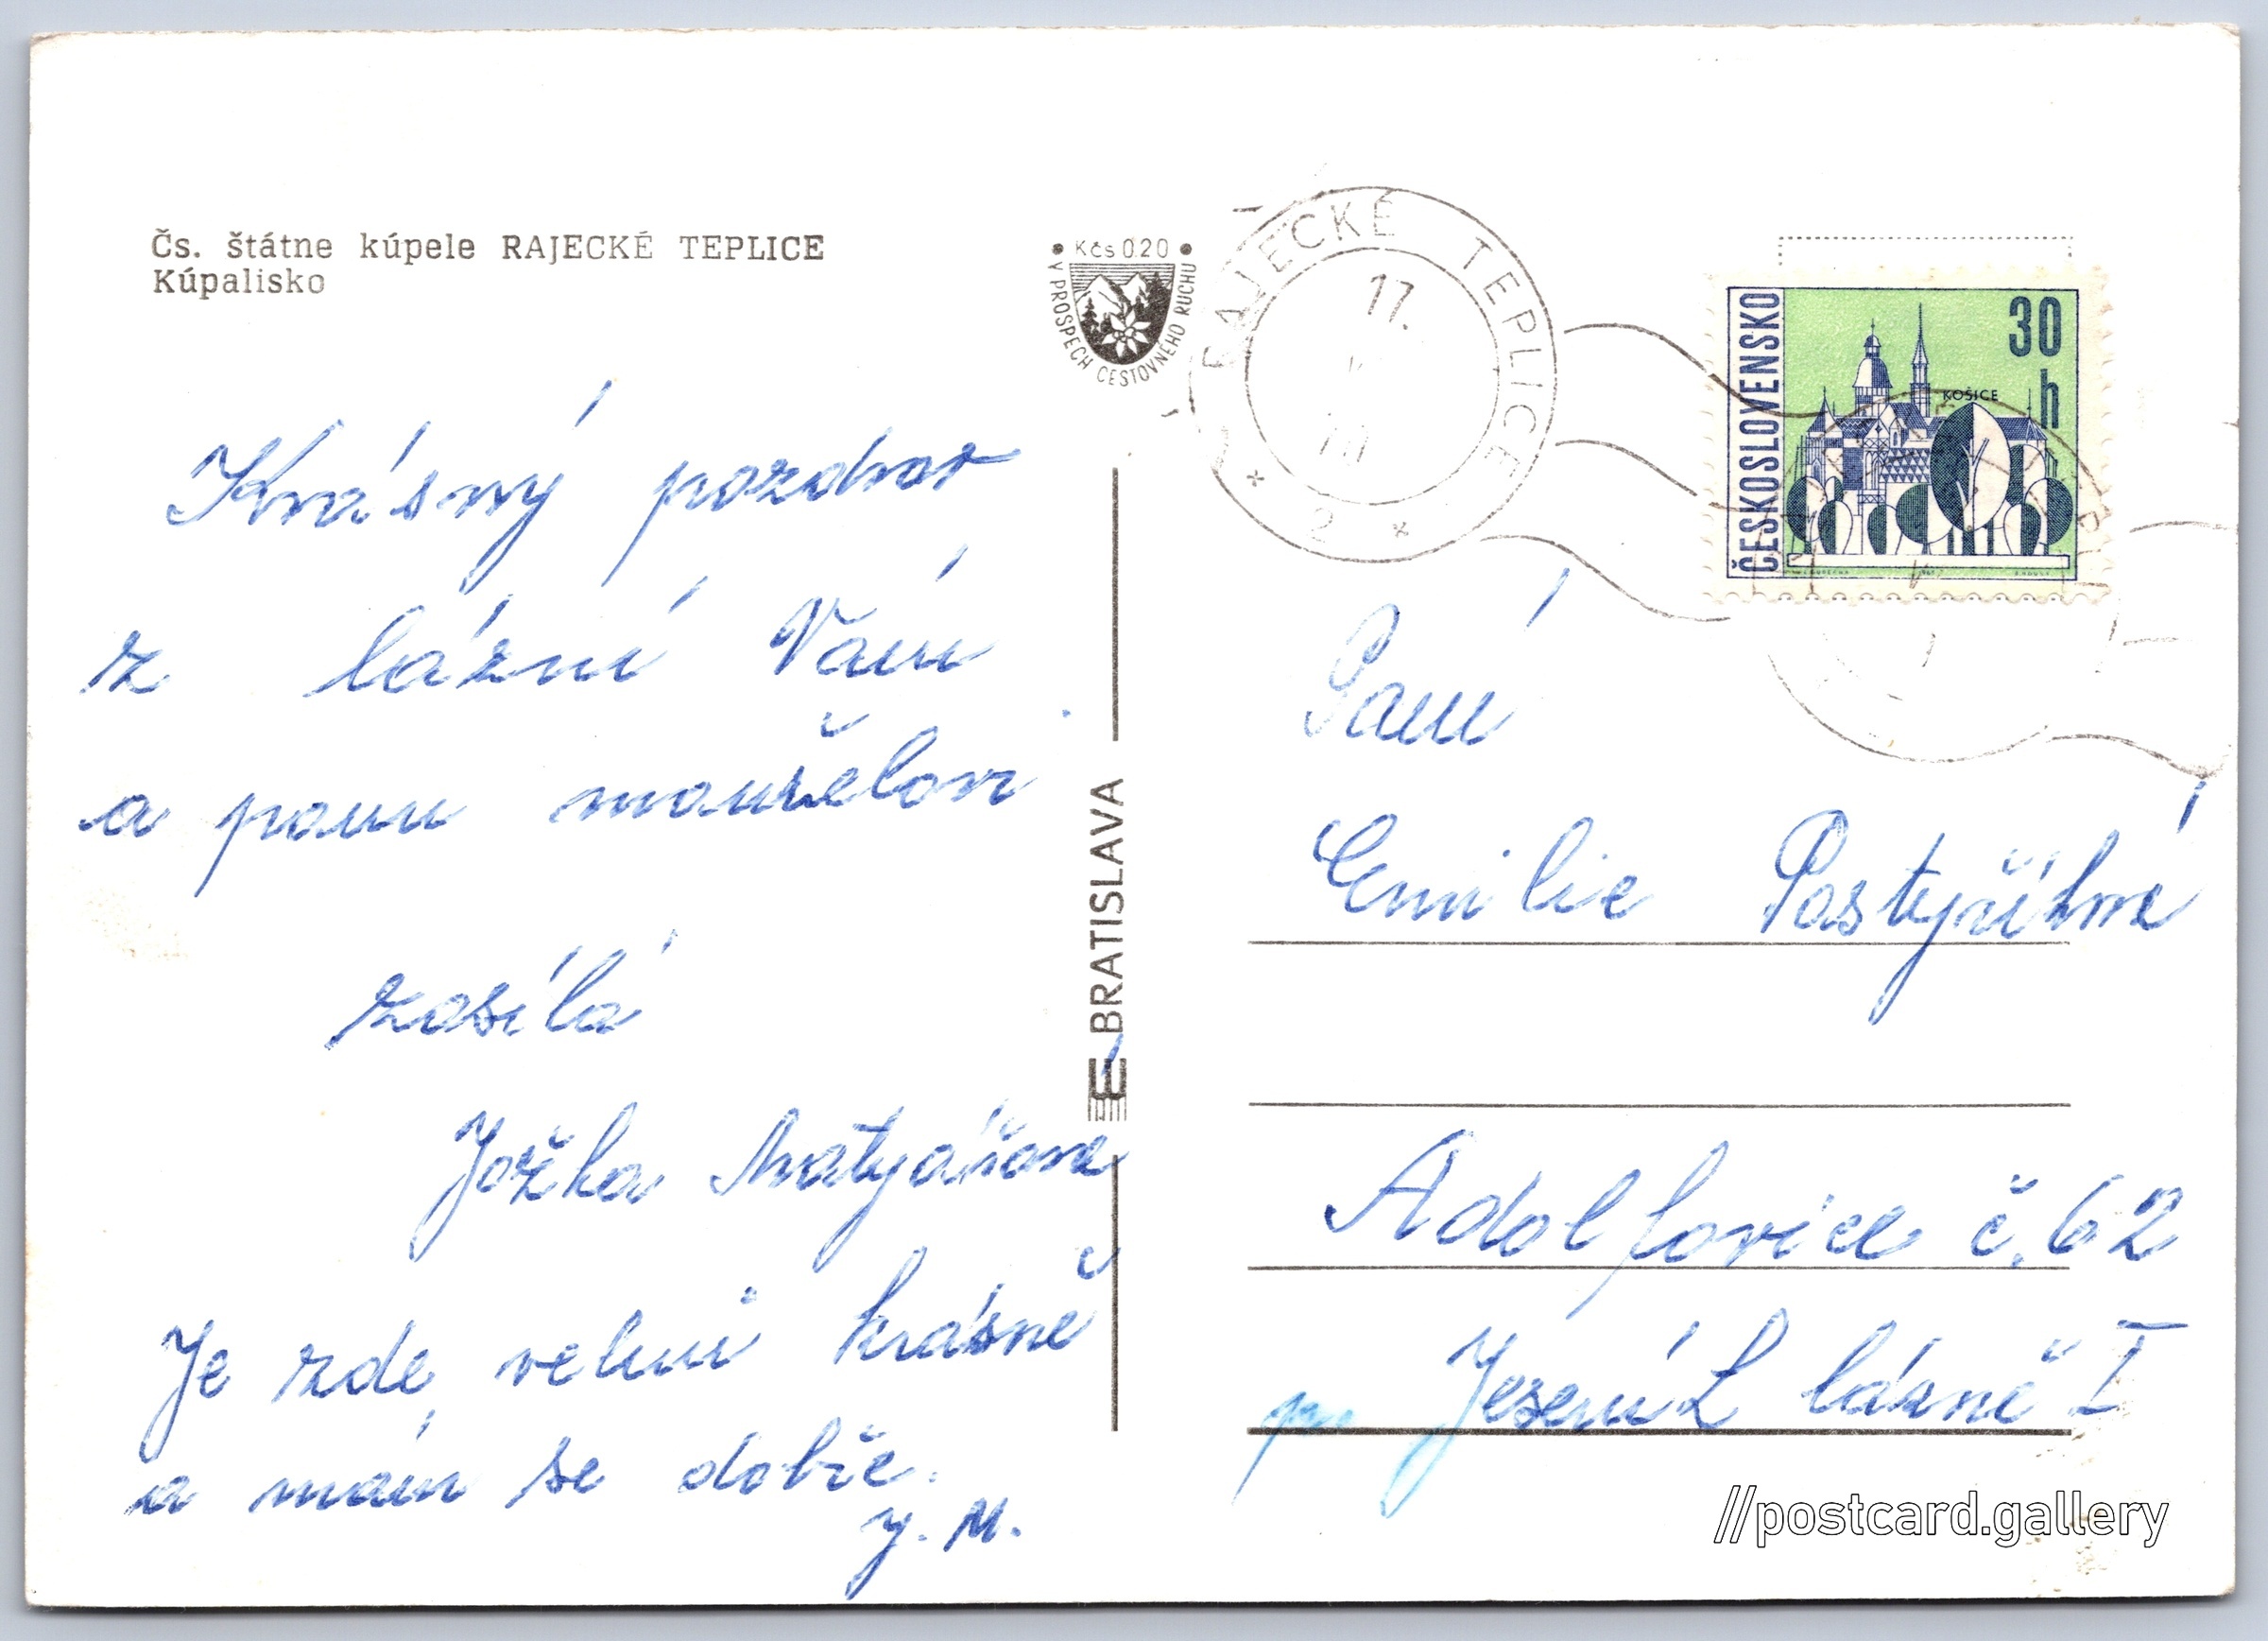 Čs. štátne kúpele RAJECKÉ TEPLICE
Kúpalisko
• Kčs 0.20 •
V PROSPECH CESTOVNÉHO RUCHU
RAJECKÉ TEPLICE
17.
* 2 *
ČESKOSLOVENSKO
30
h
KOŠICE
Krásný pozdrav
z lázní Vám
a panu manželovi
zasílá
Jožka
Je zde velmi krásně
a mám se dobře.
J. M.
BRATISLAVA
Paní
Emilie Pastyříková
Adolfovice č. 62
p. Jeseník lázně I
//postcard.gallery